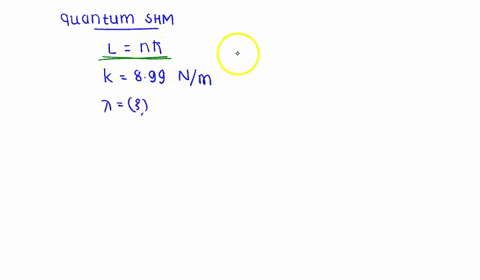 quantum SHM
L = nħ
k = 8.99 N/m
λ = (?)